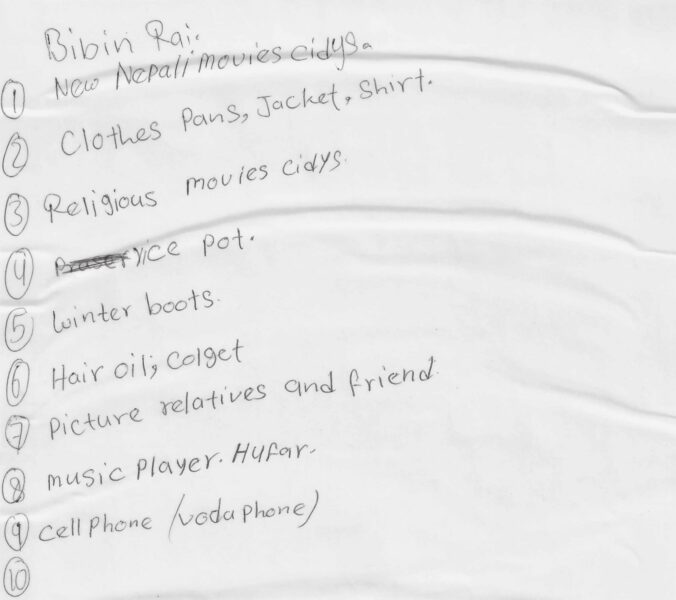 Bibin Rai.
① New Nepali movies cidys.
② Clothes Pans, Jacket, Shirt.
③ Religious movies cidys.
④ rice pot.
⑤ Winter boots.
⑥ Hair oil; Colget
⑦ Picture relatives and friend.
⑧ music Player. Hufar.
⑨ cell Phone (vodaphone)
⑩